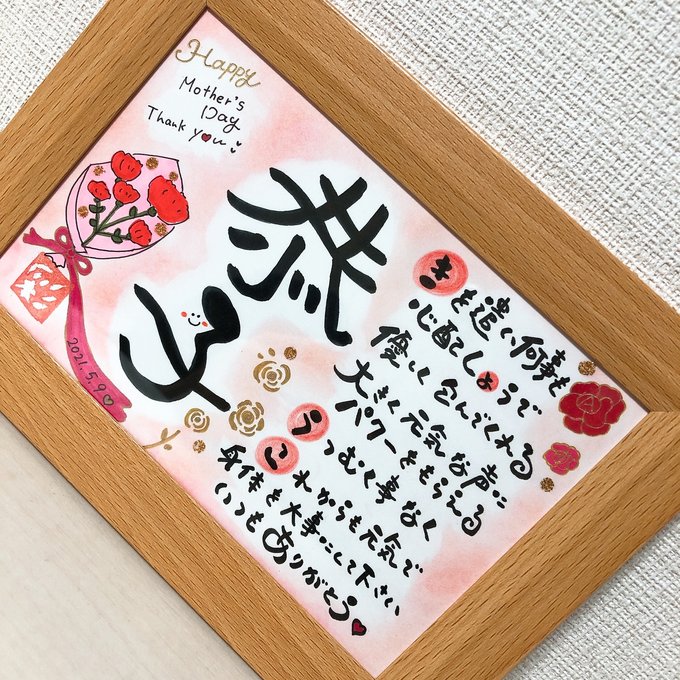 Happy
Mother's
Day
Thank you
恭子
2021.5.9
きを遣い何事も
心配しょうで
優しく包んでくれる
大きく元気な声に
パワーをもらえる
うつむく事なく
これからも元気で
身体を大事にして下さい
いつもありがとう